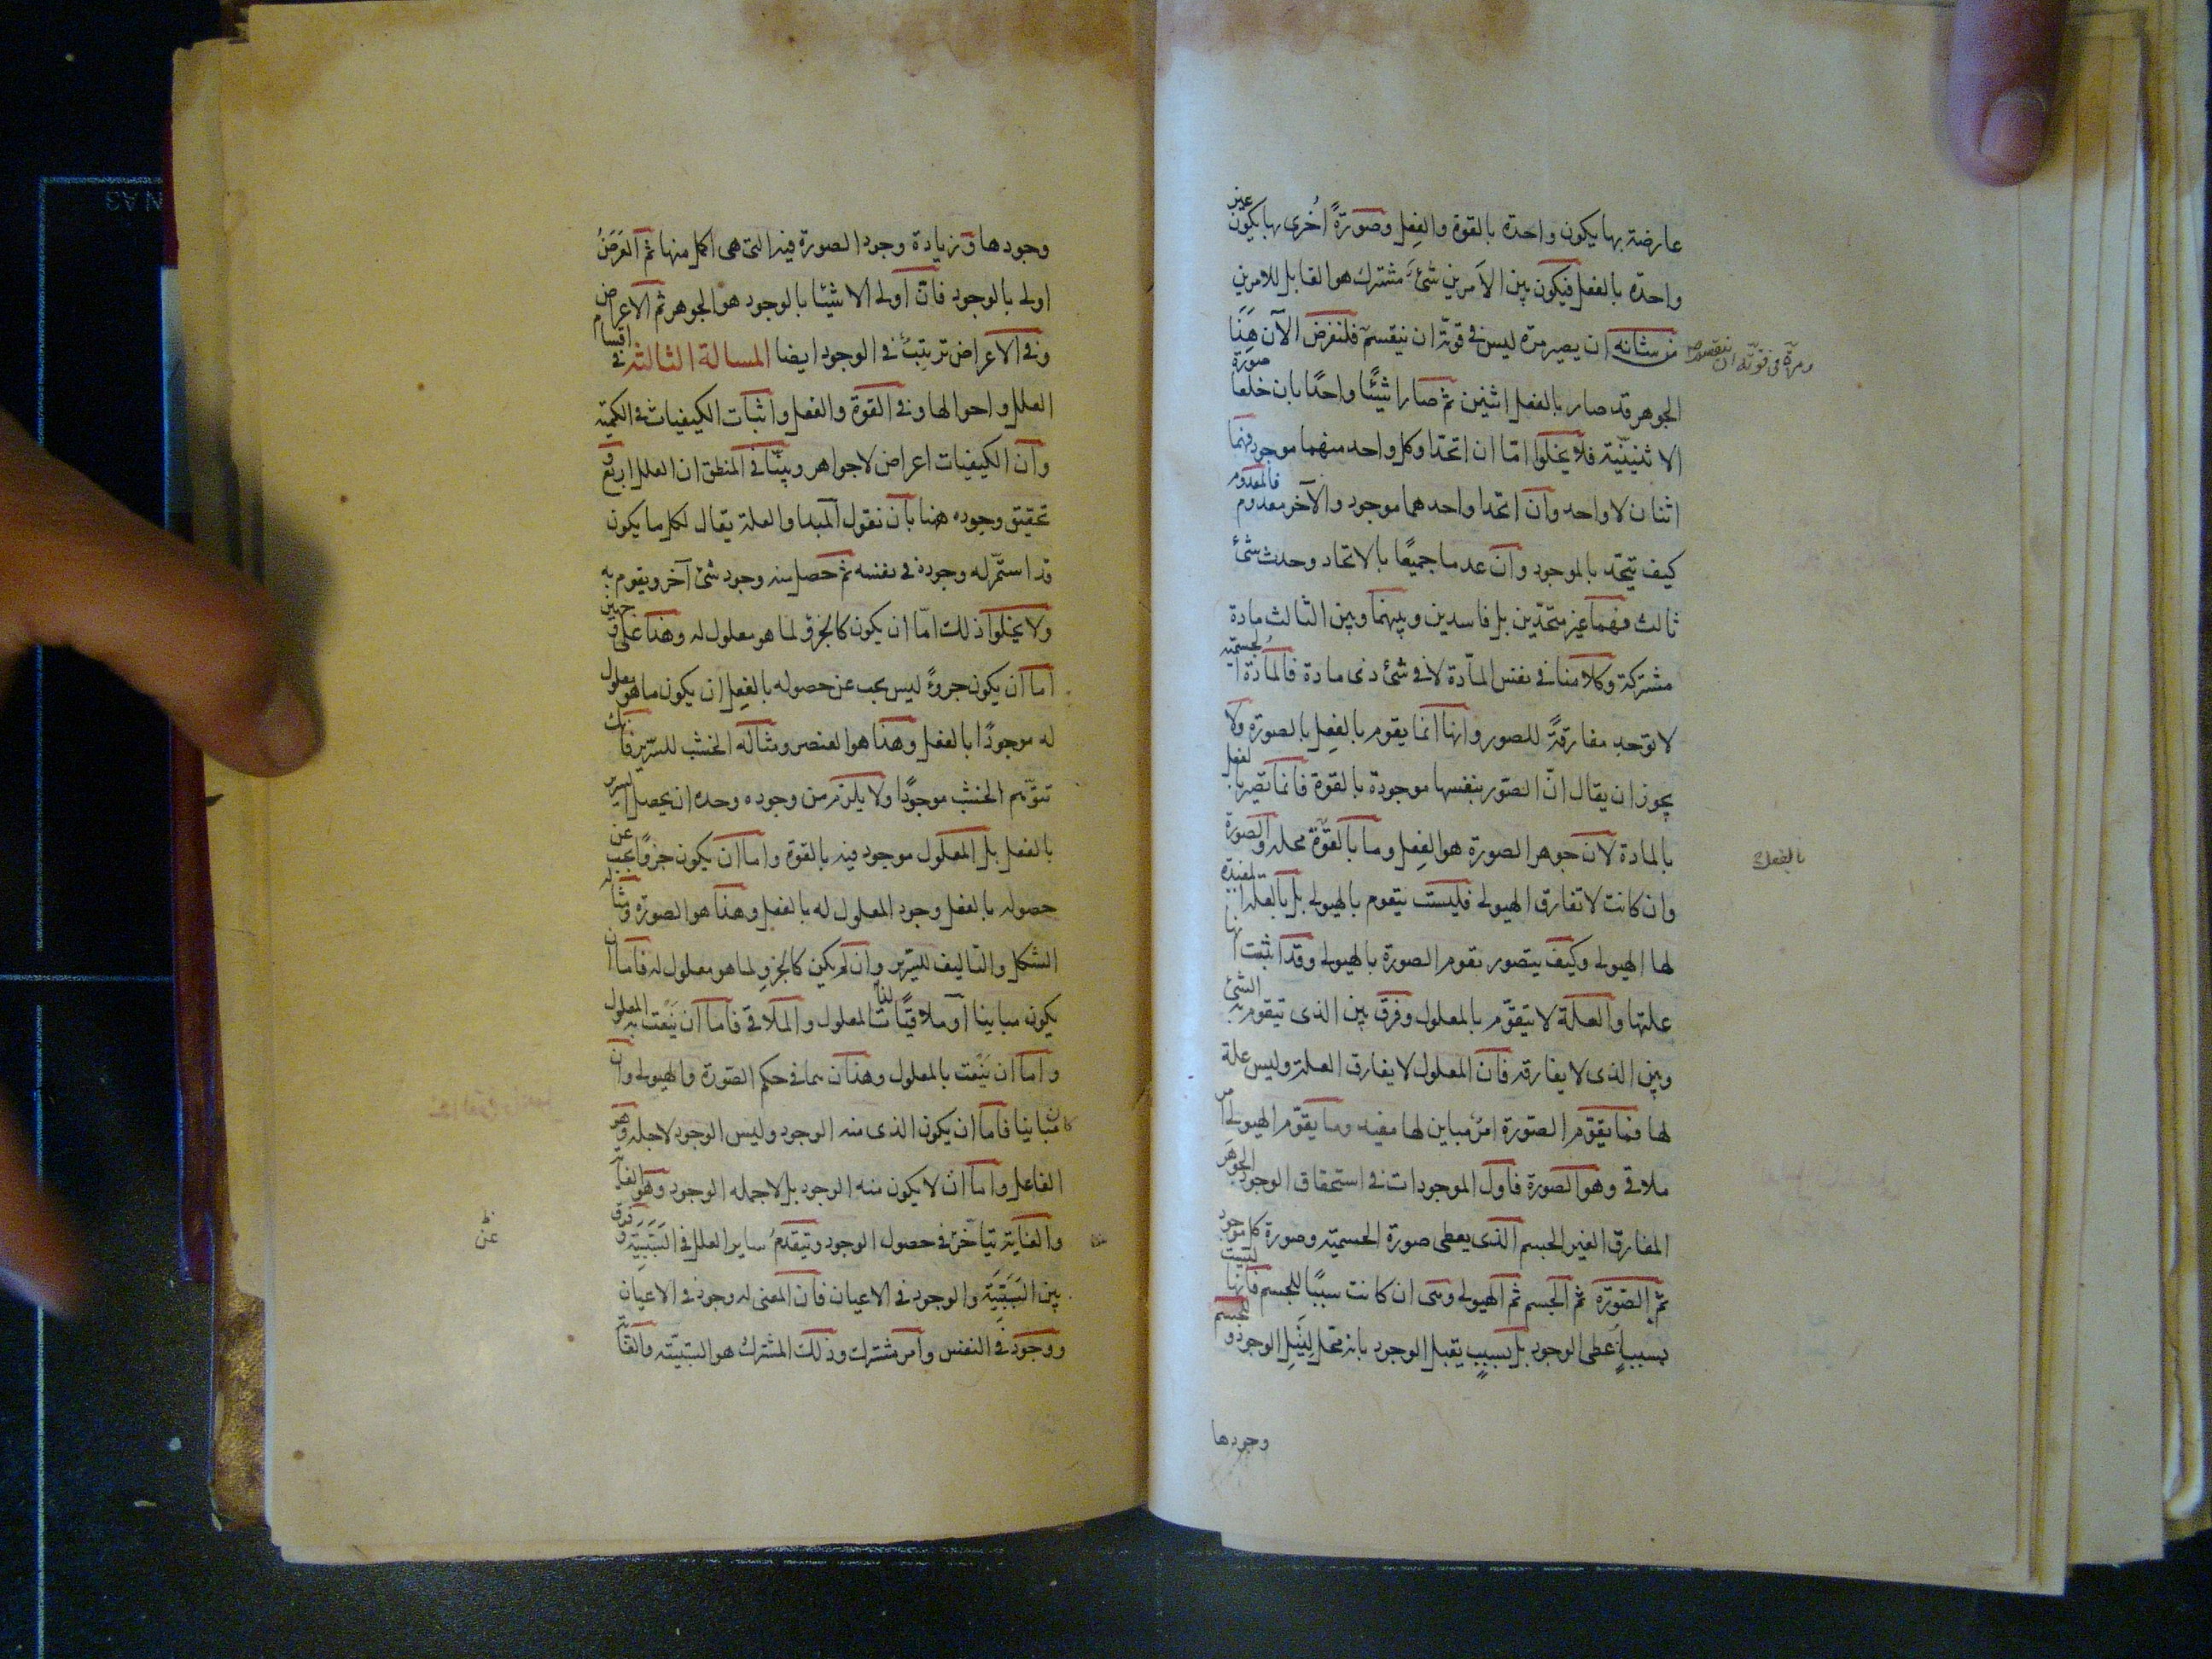 عارضة بها يكون واحدة بالقوة والفعل وصورةً اُخرى بها يكون غير
واحدة بالفعل فيكون بين الأمرين شئ مشترك هو القابل للامرين
من شانه ان يصير مرة ليس في قوته ان ينقسم فلنفرض الآن هذا
ومرّة في قوّته ان ينقسم
الجوهر قد صار بالفعل اثنين ثم صارا شيئًا واحدًا بان خلعا صورة
الاثنينيّة فلا يخلوا امّا ان اتحدا وكل واحد منهما موجود فهما
اثنان لا واحد وان اتحدا واحدهما موجود والآخر معدوم فالمعدوم
كيف يتحد بالموجود وان عدما جميعًا بالاتحاد وحدث شئ
ثالث فهما غير متحدّين بل فاسدين وبينهما وبين الثالث مادة
مشتركة وكلامنا في نفس المادّة لا في شئ ذى مادة فالمادة الجسمية
لا توجد مفارقةً للصور وانها انما يقوم بالفعل بالصورة ولا
يجوز ان يقال انّ الصور بنفسها موجودة بالقوة فانما تصير بالفعل
بالمادة لان جوهر الصورة هو الفعل وما بالقوّة محله والصورة
بالفعل
وان كانت لا تفارق الهيولى فليست يتقوم بالهيولى بل بالعلة المفيدة
لها الهيولى وكيف يتصور تقوم الصورة بالهيولى وقد اثبت انها
علتها والعلة لا يتقوّم بالمعلول وفرق بين الذى يتقوم به الشئ
وبين الذى لا يفارقه فان المعلول لا يفارق العلة وليس علة
لها فما يقوّم الصورة امرٌ مباين لها مفيد وما يقوّم الهيولى امر
ملاقى وهو الصورة فاول الموجودات في استحقاق الوجود الجوهر
المفارق الغير الجسم الذى يعطى صورة الجسمية وصورة كل موجود
ثم الصّورة ثم الجسم ثم الهيولى وهى ان كانت سببًا للجسم فانها ليست
بسبب يعطى الوجود بل بسبب يقبل الوجود بانه محل لنيل الوجود وللجسم
وجودها
وجودها وزيادة وجود الصورة فيه التى هى اكمل منها ثم العَرَضُ
اولى بالوجود فانّ اولى الاشيئا بالوجود هو الجوهر ثم الاعراض
وفي الاعراض ترتيبٌ في الوجود ايضا المسالة الثالثة في اقسام
العلل واحوالها وفي القوة والفعل واثبات الكيفيات في الكمية
وان الكيفيات اعراض لا جواهر وبيّنا في المنطق ان العلل اربع و
تحقيق وجوده هنا بان نقول المبدا والعلة يقال لكل ما يكون
قد استمّر له وجوده في نفسه ثم حصل منه وجود شئ آخر ويقوم به
ولا يخلوا ذلك امّا ان يكون كالجزؤ لما هو معلول له وهذا على وجهين
اما ان يكون جزوءً ليس يجب عن حصوله بالفعل ان يكون ما هو معلول
له موجودًا بالفعل وهذا هو العنصر ومثاله الخشب للسّرير فانك
تتوّهم الخشب موجودًا ولا يلزم من وجوده وحده ان يحصل السرير
بالفعل بل المعلول موجود فيه بالقوة واما ان يكون جزوًا يجب عن
حصوله بالفعل وجود المعلول له بالفعل وهذا هو الصورة ومثاله
الشكل والتاليف للسّرير وان لم يكن كالجزو لما هو معلول له فاما ان
يكون مباينا او ملاقيًا لذات المعلول والملاقى فاما ان يُنْعَت به المعلول
واما ان يُنْعَت بالمعلول وهذان هما في حكم الصّورة والهيولى وان
كان مبُاينا فاما ان يكون الذى منه الوجود وليس الوجود لاجله وهو
الفاعل واما ان لا يكون منه الوجود بل لاجله الوجود وهو الغاية
والغاية تتاخّر في حصول الوجود ويتقدم ساير العلل في السَبَبيّة وفرق
بين السَبَبيّة والوجود في الاعيان فان المعنى له وجود في الاعيان
ووجود في النفس وامر مشترك وذلك المشترك هو السببيّة والغاية